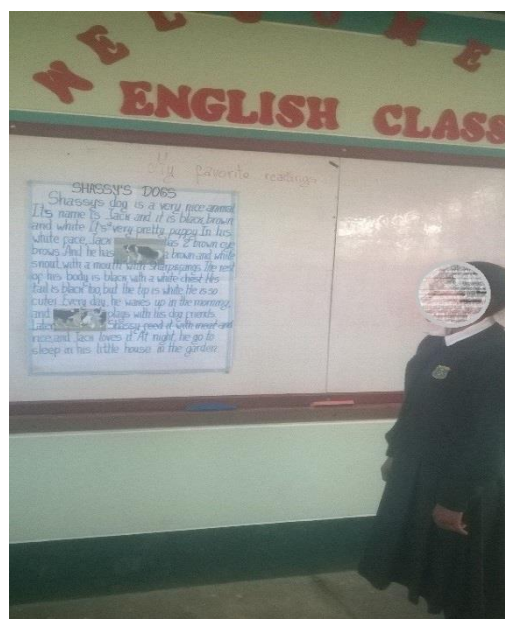 WELCOME
ENGLISH CLASS
My favorite readings
SHASSY'S DOGS
Shassys dog is a very nice animal
It's name Is Jack and it is black, brown
and white It's very pretty puppy In his
white face, Jack has 2 brown eye
brows. And he has a brown and white
snout, with a mouth with sharp fangs. The rest
of his body is black with a white chest. His
tail is black too, but the tip is white. He is so
cute. Every day, he wakes up in the morning,
and plays with his dog friends
Later, Shassy feed it with meat and
rice, and Jack loves it. At night, he go to
sleep in his little house in the garden.